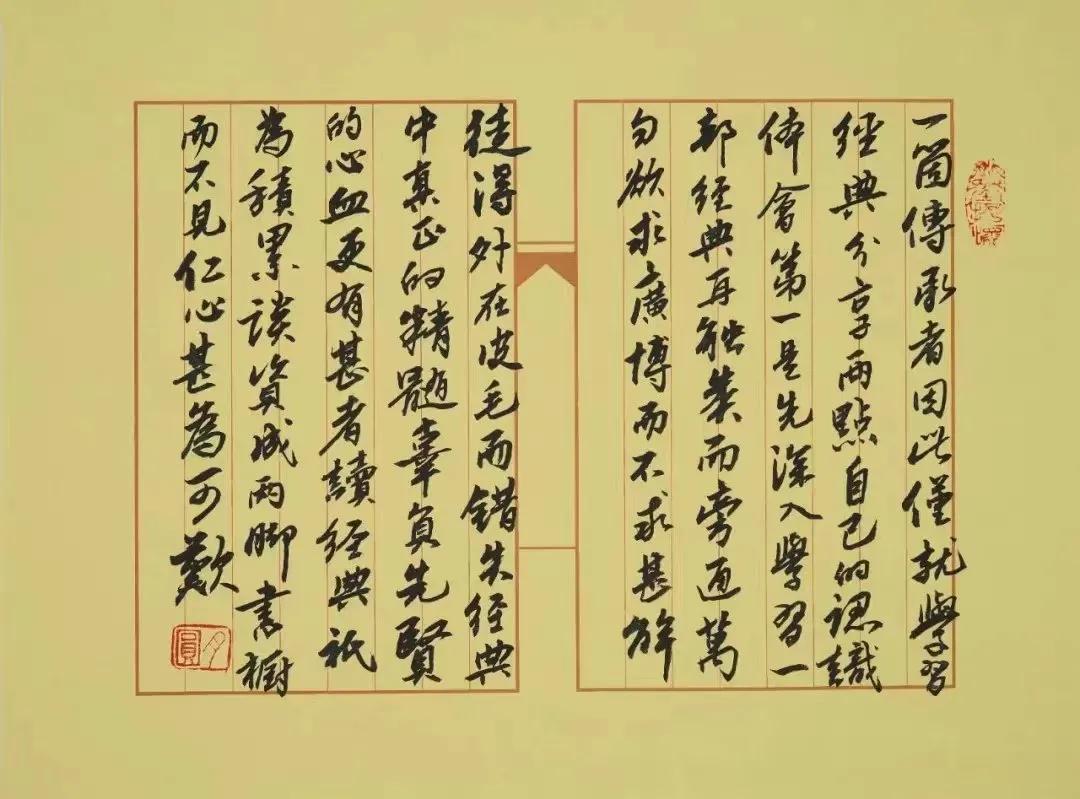 一箇傳承者因此僅就學習
經典分享兩點自己的認識
体會第一是先深入學習一
部經典再融業而旁通萬
勿欲求廣博而不求甚解
徒得外在皮毛而錯失經典
中真正的精髓辜負先賢
的心血更有甚者讀經典祇
為積累談資成兩脚書橱
而不見仁心甚為可歎